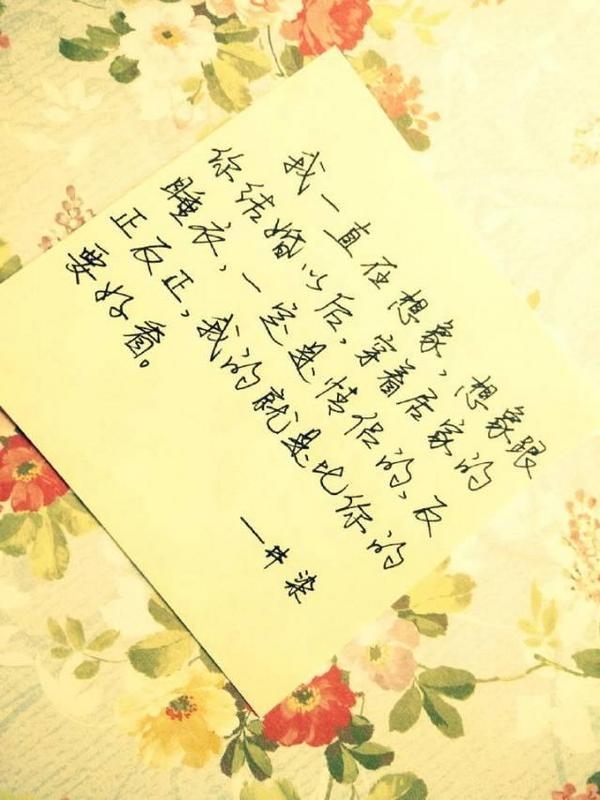 我一直在想象，想象跟
你结婚以后，穿着居家的
睡衣，一定是情侣的，反
正反正，我的就是比你的
要好看。
一井梁